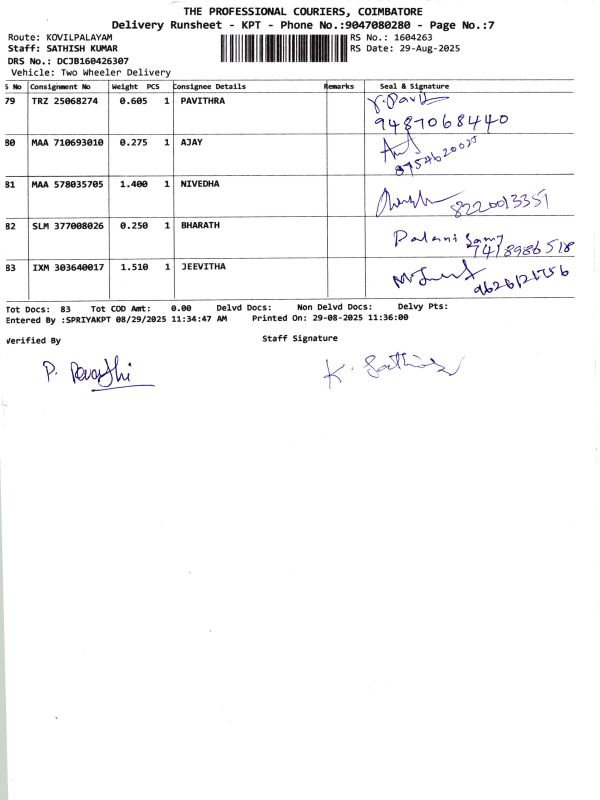 THE PROFESSIONAL COURIERS, COIMBATORE
Delivery Runsheet - KPT - Phone No.:9047080280 - Page No.:7
Route: KOVILPALAYAM RS No.: 1604263
Staff: SATHISH KUMAR RS Date: 29-Aug-2025
DRS No.: DCJB160426307
Vehicle: Two Wheeler Delivery
S No Consignment No Weight PCS Consignee Details Remarks Seal & Signature
79 TRZ 25068274 0.605 1 PAVITHRA
9487068440
80 MAA 710693010 0.275 1 AJAY
81 MAA 578035705 1.400 1 NIVEDHA
8220013351
82 SLM 377008026 0.250 1 BHARATH Palani Samy
7418986518
83 IXM 303640017 1.510 1 JEEVITHA
Tot Docs: 83 Tot COD Amt: 0.00 Delvd Docs: Non Delvd Docs: Delvy Pts:
Entered By :SPRIYAKPT 08/29/2025 11:34:47 AM Printed On: 29-08-2025 11:36:00
Verified By Staff Signature